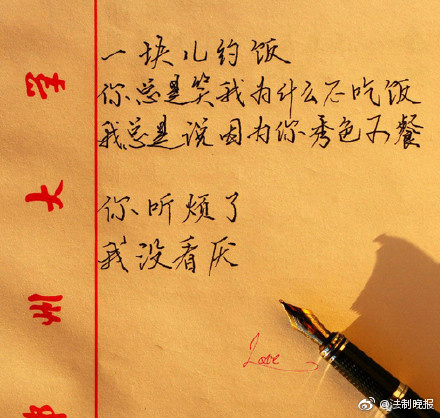 一块儿约饭
你总是笑我为什么不吃饭
我总是说因为你秀色可餐
你听烦了
我没看厌
Love
州大学
@法制晚报